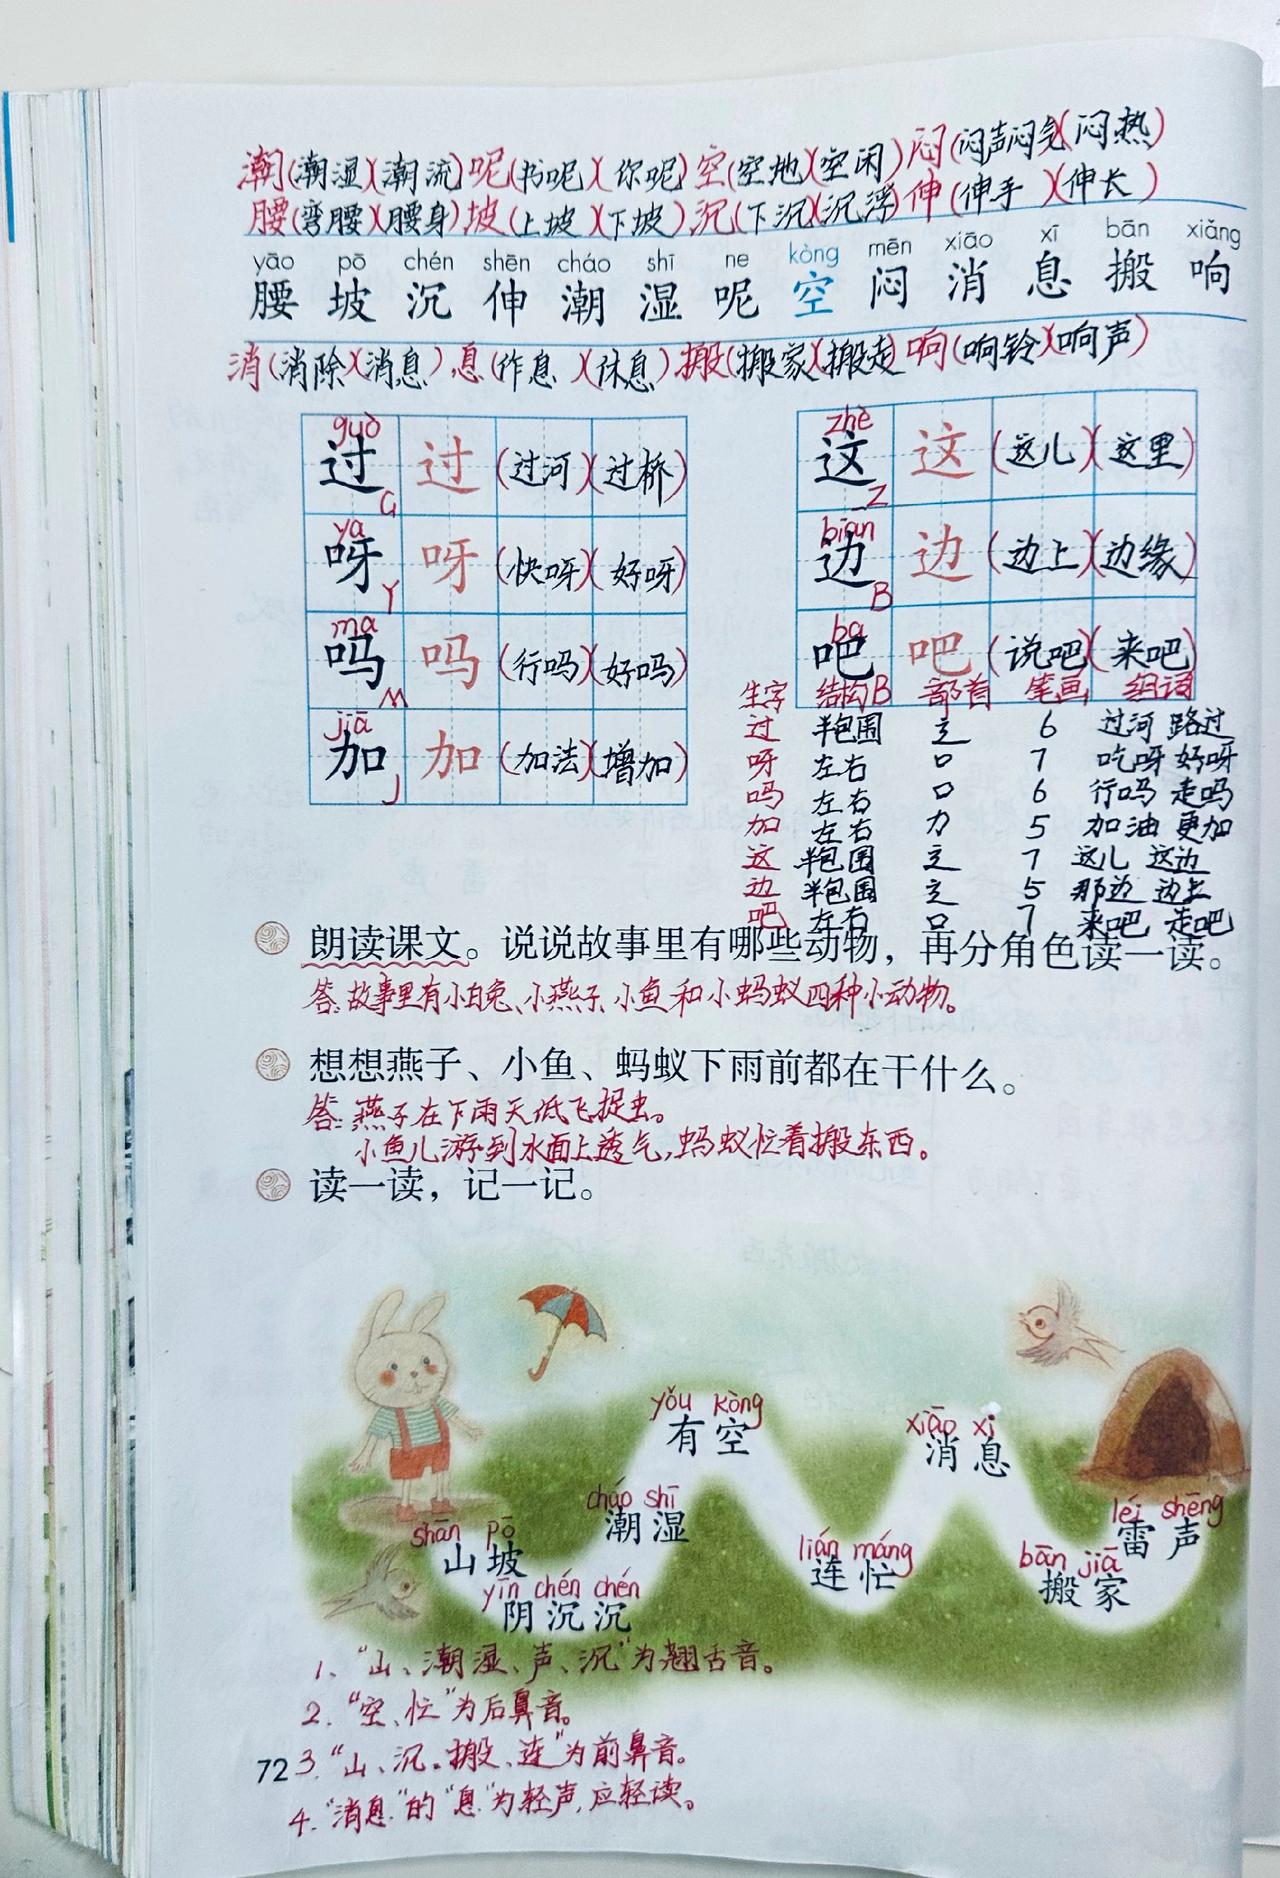 潮(潮湿)(潮流)呢(书呢)(你呢)空(空地)(空闲)闷(闷声闷气)(闷热)
腰(弯腰)(腰身)坡(上坡)(下坡)沉(下沉)(沉浮)伸(伸手)(伸长)
yāo pō chén shēn cháo shī ne kòng mēn xiāo xī bān xiǎng
腰 坡 沉 伸 潮 湿 呢 空 闷 消 息 搬 响
消(消除)(消息)息(作息)(休息)搬(搬家)(搬走)响(响铃)(响声)
guò
过 过 (过河)(过桥)
G
ya
呀 呀 (快呀)(好呀)
Y
ma
吗 吗 (行吗)(好吗)
M
jiā
加 加 (加法)(增加)
J
zhè
这 这 (这儿)(这里)
Z
biān
边 边 (边上)(边缘)
B
ba
吧 吧 (说吧)(来吧)
B
生字 结构 部首 笔画 组词
过 半包围 辶 6 过河 路过
呀 左右 口 7 吃呀 好呀
吗 左右 口 6 行吗 走吗
加 左右 力 5 加油 更加
这 半包围 辶 7 这儿 这边
边 半包围 辶 5 那边 边上
吧 左右 口 7 来吧 走吧
朗读课文。说说故事里有哪些动物，再分角色读一读。
答:故事里有小白兔、小燕子、小鱼和小蚂蚁四种小动物。
想想燕子、小鱼、蚂蚁下雨前都在干什么。
答:燕子在下雨天低飞捉虫。
小鱼儿游到水面上透气,蚂蚁忙着搬东西。
读一读，记一记。
shān pō
山坡
yīn chén chén
阴沉沉
cháo shī
潮湿
yǒu kòng
有空
lián máng
连忙
xiāo xi
消息
bān jiā
搬家
léi shēng
雷声
1、"山、潮湿、声、沉"为翘舌音。
2."空、忙"为后鼻音。
3."山、沉、搬、连"为前鼻音。
4."消息"的"息"为轻声,应轻读。
72